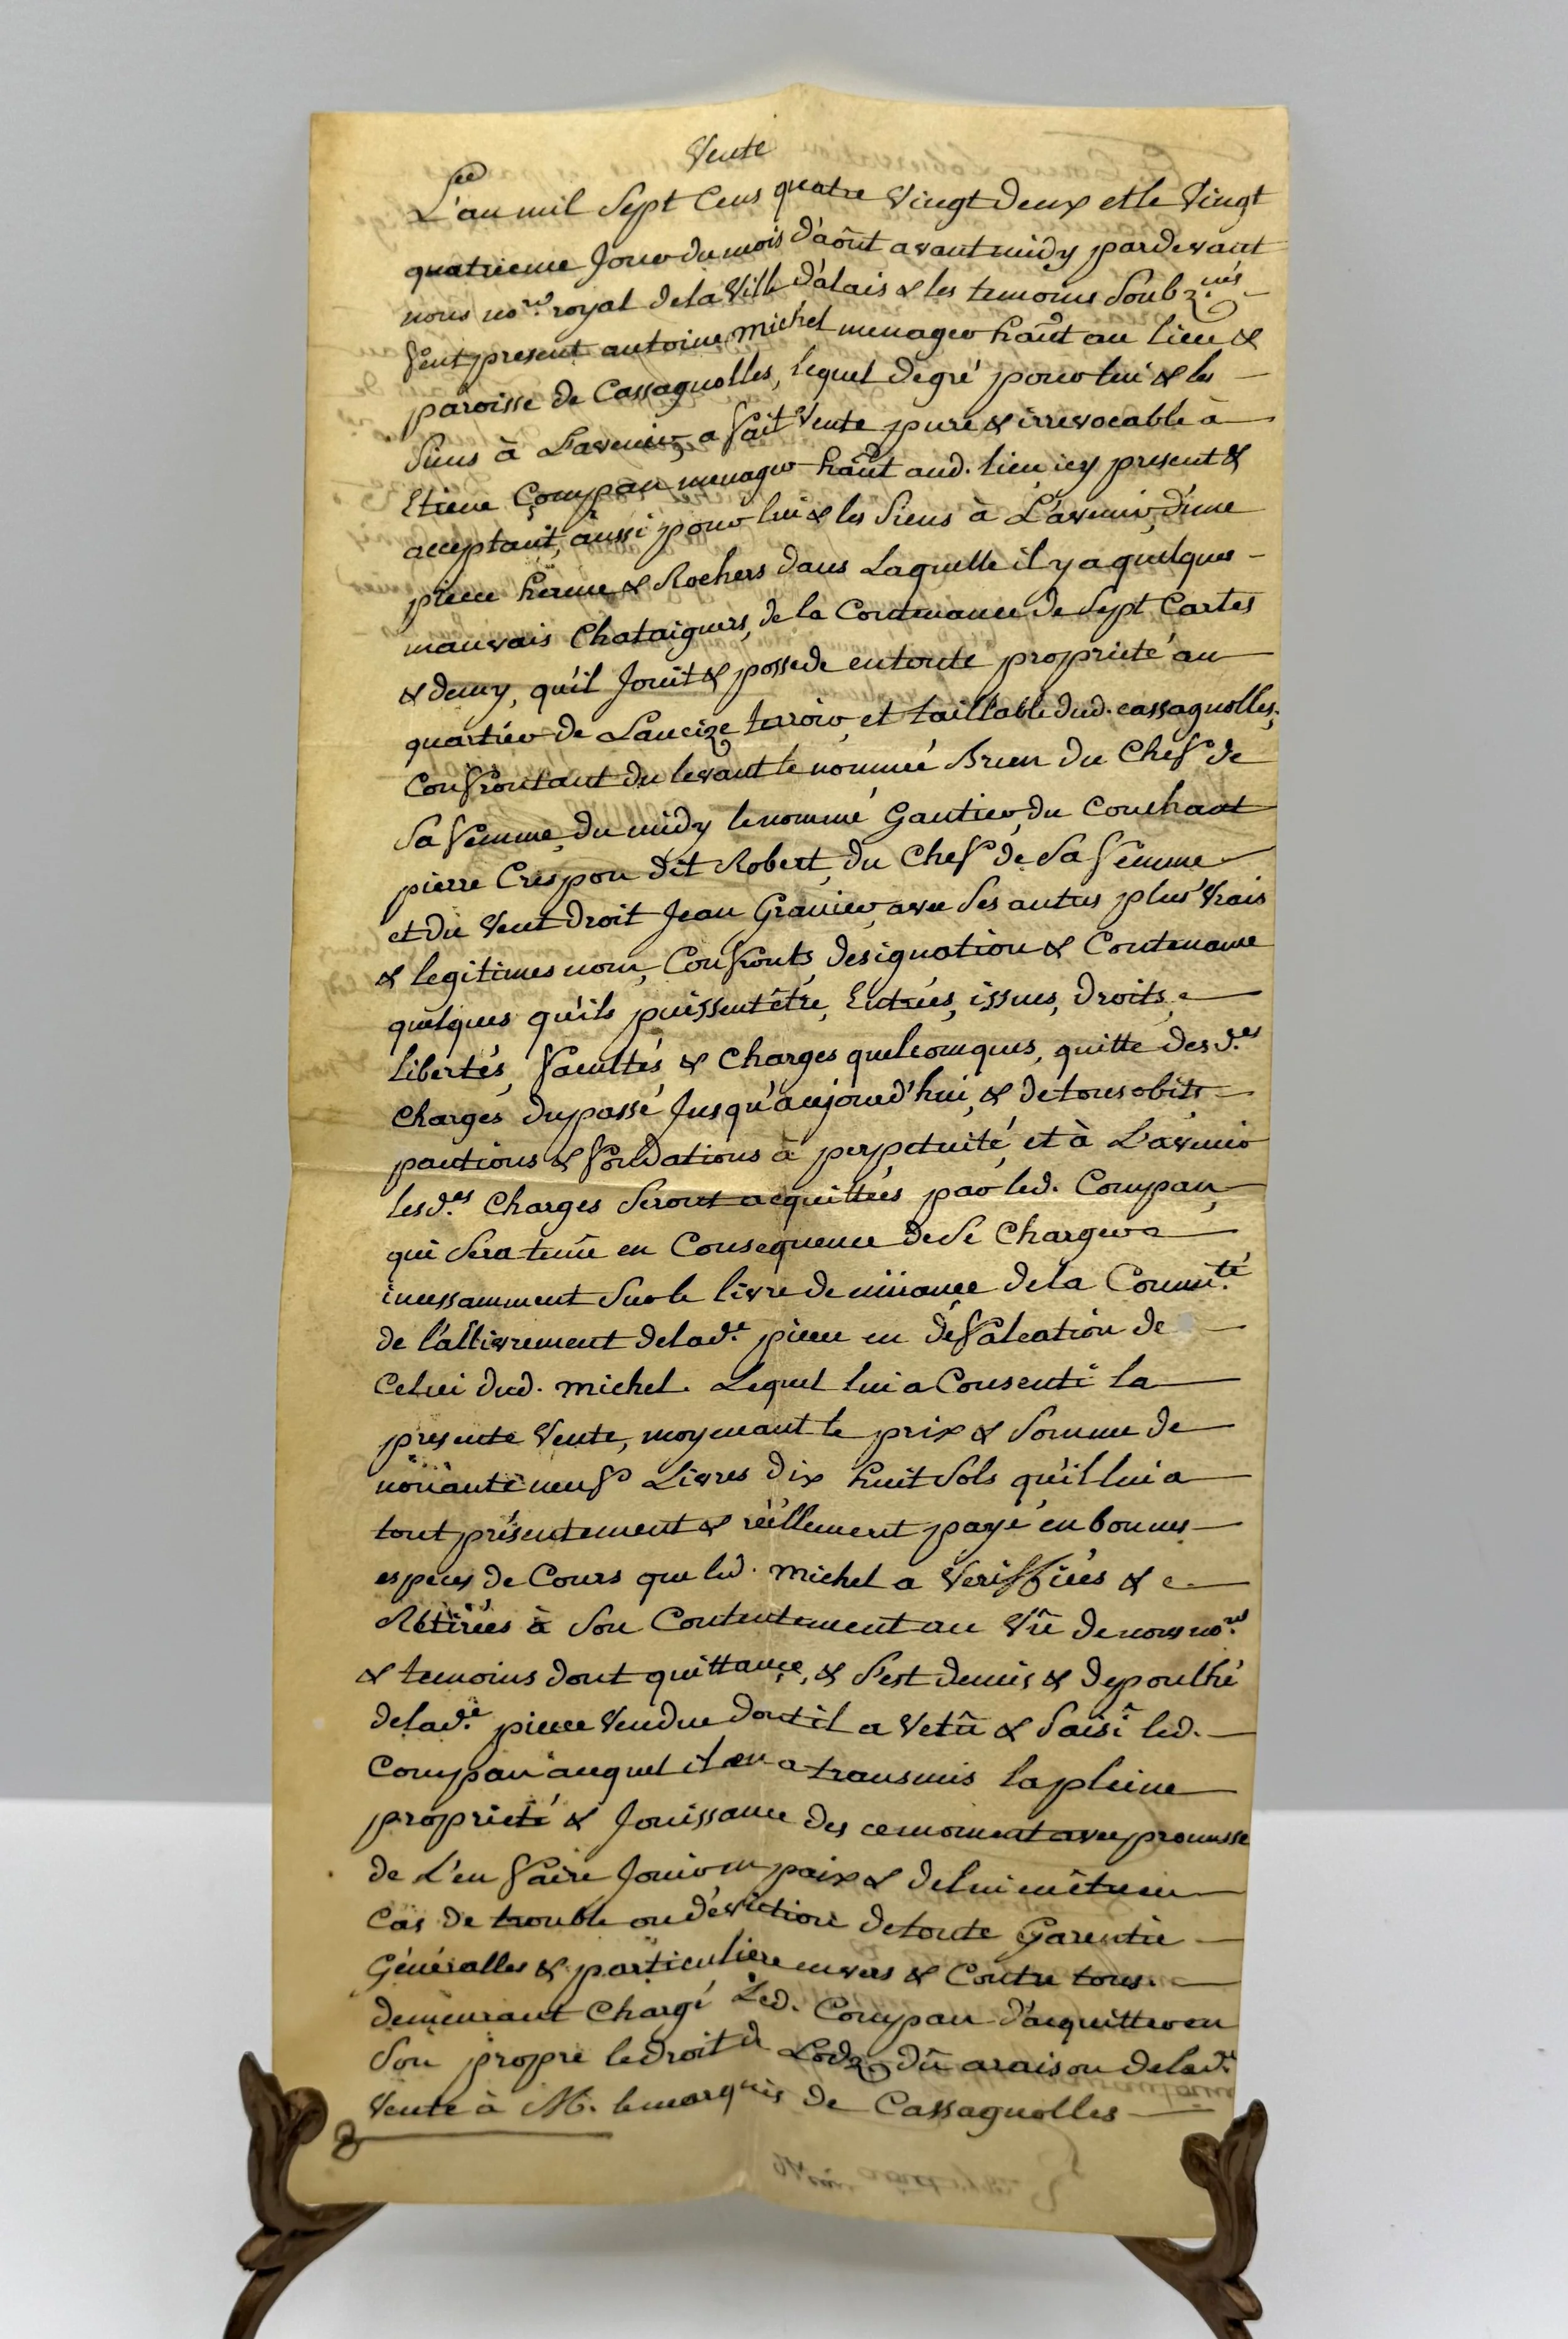 Vente
L'an mil Sept Cens quatre Vingt Deux et le Vingt
quatrieme Jour du mois d'aôut avant midy pardevant
nous no.re royal de la Ville d'alais & les temoins Soubz.nés
feut present antoine michel menager hâ͠nt au lieu &
paroisse de Cassagnolles, lequel de gré pour lui & les
Siens à L'avenir, a fait Vente pure & irrevocable à
Etiene Compan menager hâ͠nt aud. lieu icy present &
acceptant, aussi pour lui & les Siens à L'avenir, d'une
piece herme & Rochers dans Laquelle il y a quelques
mauvais Chataigners, de la Contenance de Sept Cartes
& demy, qu'il Jouit & possede en toute proprieté au
quartier de Laucize terroir, et taillable dud. cassagnolles,
Confrontant du levant le nommé Brun du Chef de
Sa femme, du midy le nommé Gautier, du Couchant
pierre Crespon dit Robert, du Chef de Sa femme
et du Vent droit Jean Granier, avec Ses autres plus Vrais
& legitimes nom, Confronts, designation & Contenance
quelques qu'ils puissent être, Entrées, issues, droits,
libertés, facultés & Charges quelconques, quitte des d.es
Charges du passé Jusqu'aujourd'hui, & de tous obits
pantions & fondations à perpetuité, et à L'avenir
les d.es Charges Seront acquittées par led. Compan,
qui Sera tenu en Consequence de Se Charger
incessamment Sur le livre de müance de la Commu.té
de l'allivrement de lad.e piece en défalcation de
Celui dud. michel. Lequel lui a Consenti la
presente Vente, moyenant le prix & Somme de
nonante neuf Livres Dix huit Sols qu'il lui a
tout présentement & réellement payé en bonnes
especes de Cours que led. michel a Veriffiées &
Retirées à Son Contentement au Vû de nous no.re
& temoins dont quittance, & S'est demis & depoulhé
de lad.e piece Vendue dont il a Vetû & Saisi led.
Compan auquel il en a transmis la pleine
proprieté & Jouissance des ce moment avec promesse
de L'en faire Jouir en paix & de lui être en
Cas de trouble ou d'éviction de toute Garentie
Généralles & particuliere envers & Contre tous.
demeurant Chargé Led. Compan d'acquitter en
Son propre le droit de Lodz dû a raison de lad.e
Vente à M. le marquis de Cassagnolles